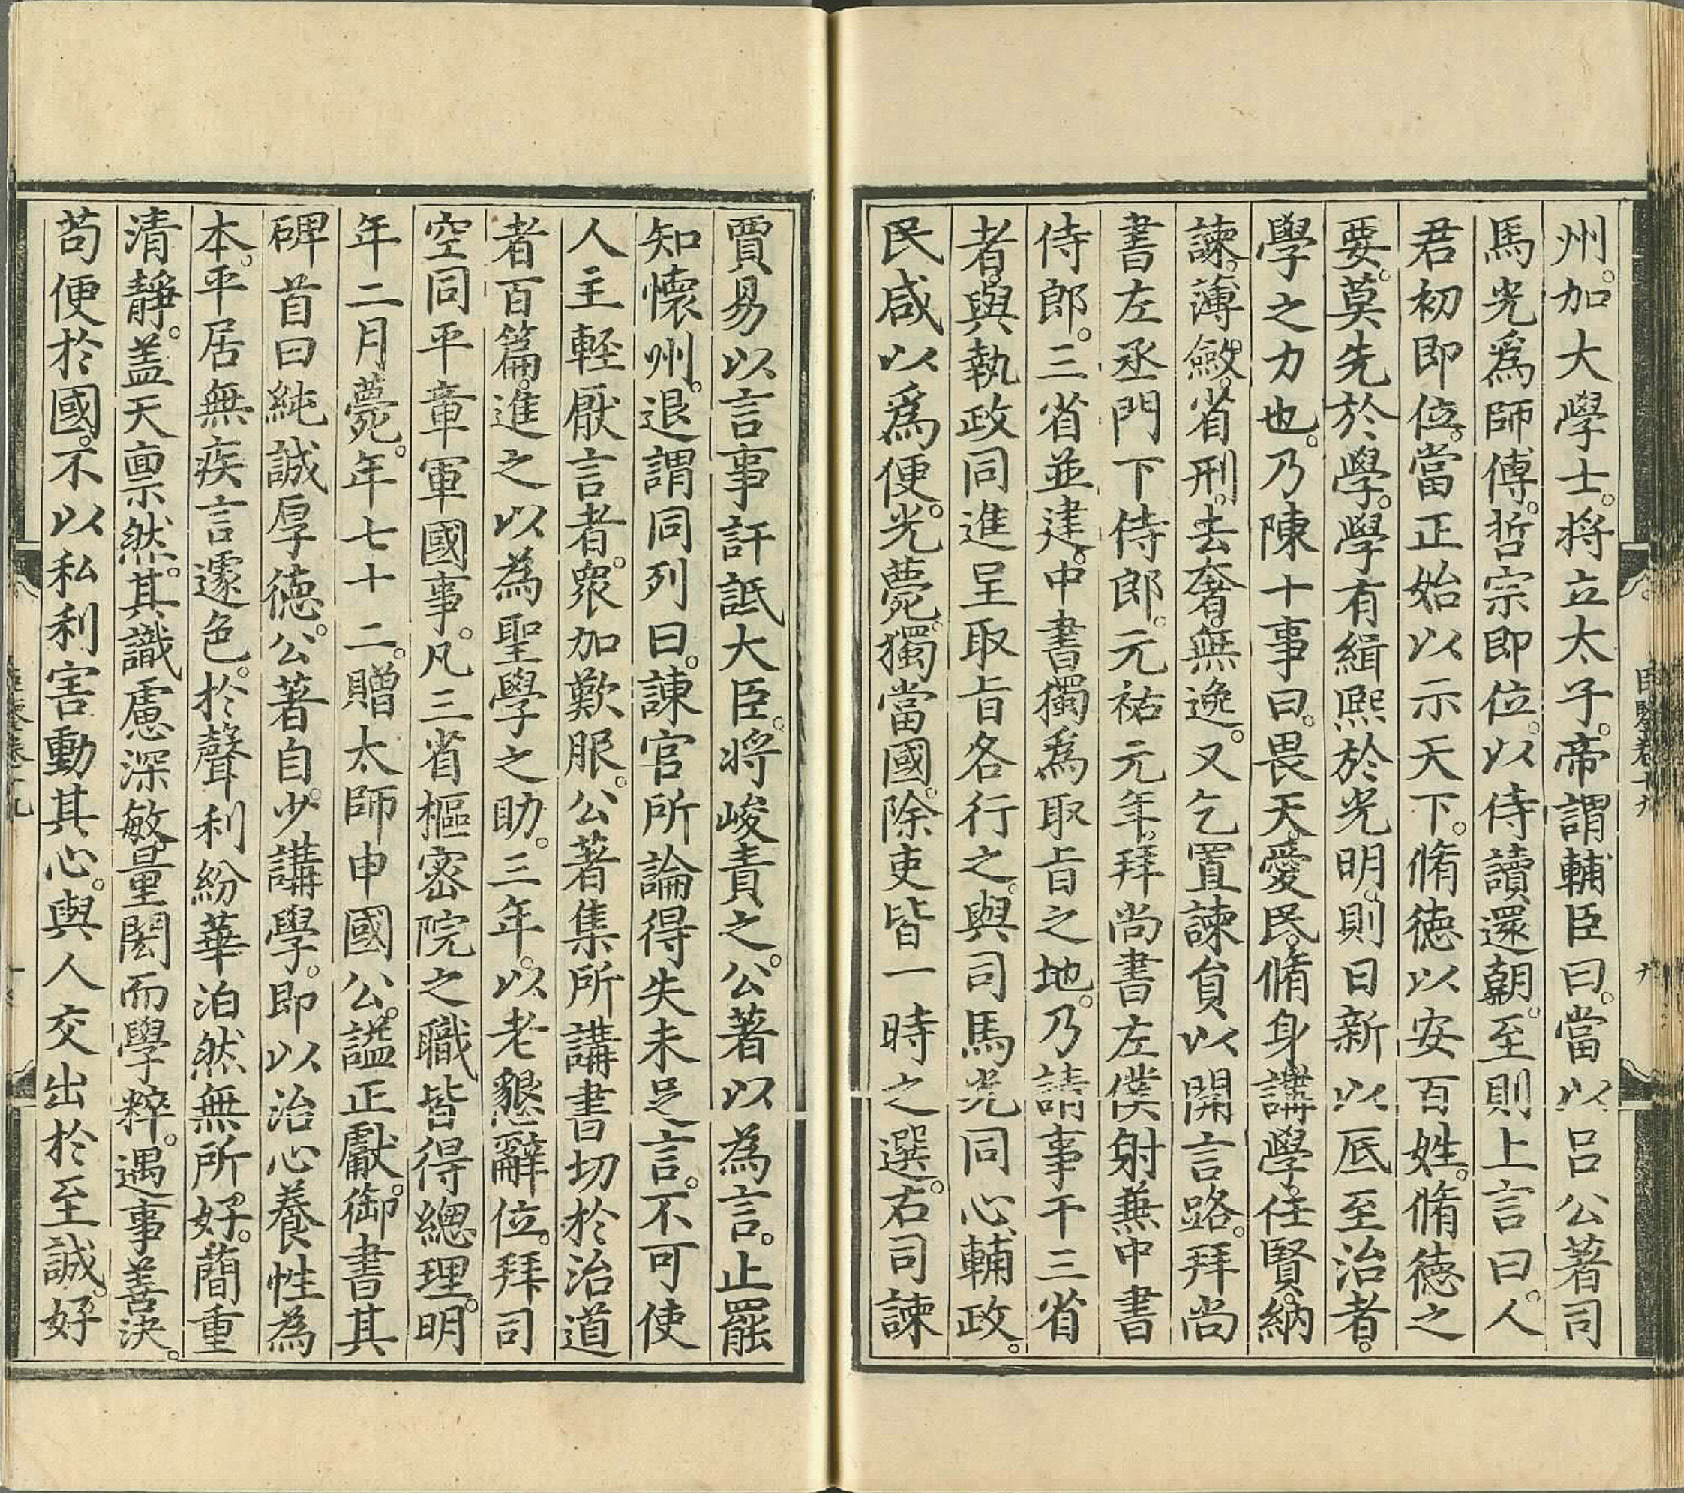 州。加大學士。將立太子。帝謂輔臣曰。當以呂公著司
馬光爲師傅。哲宗即位。以侍讀還朝。至則上言曰。人
君初即位。當正始以示天下。脩德以安百姓。脩德之
要。莫先於學。學有緝熙於光明。則日新以底至治者。
學之力也。乃陳十事曰。畏天愛民。脩身講學。任賢。納
諫。薄斂。省刑。去奢。無逸。又乞置諫員以開言路。拜尚
書左丞門下侍郎。元祐元年。拜尚書左僕射兼中書
侍郎。三省並建。中書獨爲取旨之地。乃請事干三省
者。與執政同進呈取旨各行之。與司馬光同心輔政。
民咸以爲便。光薨。獨當國。除吏皆一時之選。右司諫
賈易以言事訐詆大臣。將峻責之。公著以為言。止罷
知懷州。退謂同列曰。諫官所論得失未足言。不可使
人主輕厭言者。衆加歎服。公著集所講書切於治道
者百篇。進之以為聖學之助。三年。以老懇辭位。拜司
空同平章軍國事。凡三省樞密院之職皆得總理。明
年二月薨。年七十二。贈太師申國公。謚正獻。御書其
碑首曰純誠厚德。公著自少講學。即以治心養性為
本。平居無疾言遽色。於聲利紛華泊然無所好。簡重
清靜。盖天稟然。其識慮深敏量閎而學粹。遇事善決。
苟便於國。不以私利害動其心。與人交出於至誠。好